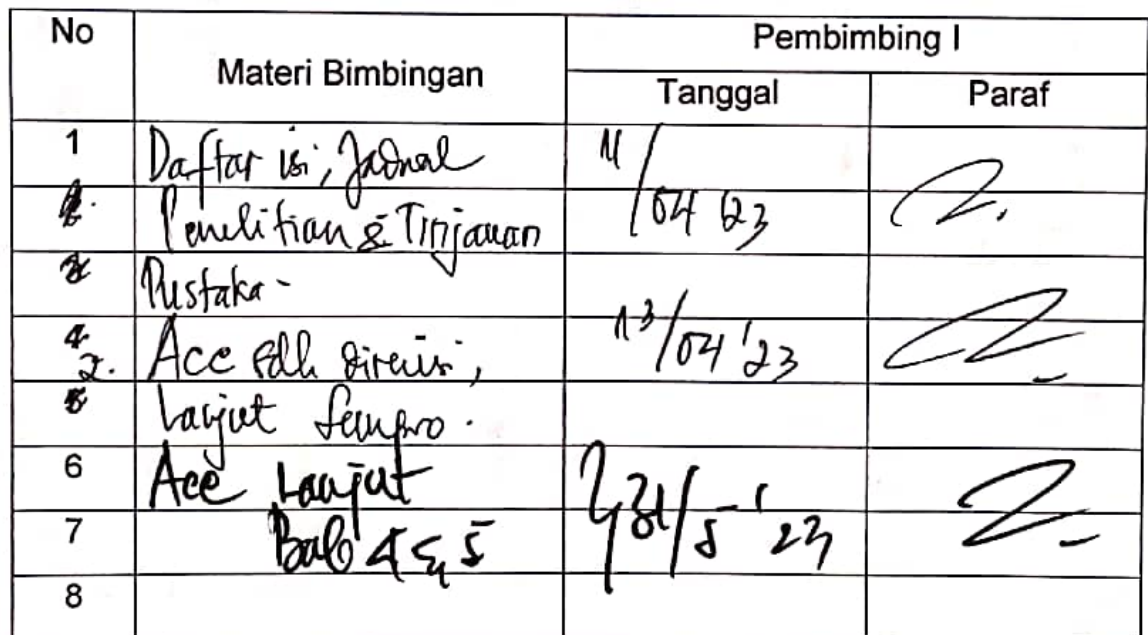 No Materi Bimbingan Pembimbing I
Tanggal Paraf
1 Daftar isi, Jadwal 11/04 '23
2. Penelitian & Tinjauan
3 Pustaka -
4 2. Acc sdh direvisi, 13/04 '23
5 Lanjut Sempro.
6 Acc Lanjut 31/5 '23
7 Bab 4 & 5
8